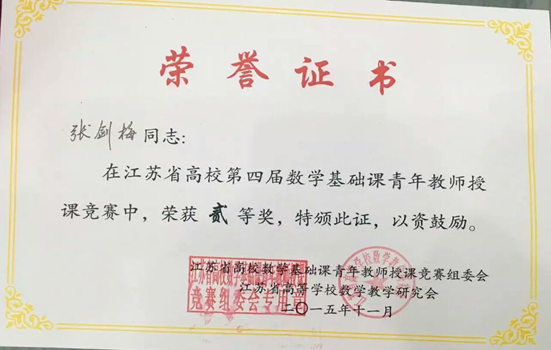 荣誉证书
张剑梅同志:
在江苏省高校第四届数学基础课青年教师授
课竞赛中，荣获 贰 等奖，特颁此证，以资鼓励。
江苏省高校数学基础课青年教师授课竞赛组委会
江苏省高等学校数学教学研究会
竞赛组委会专用章
二〇一五年十一月